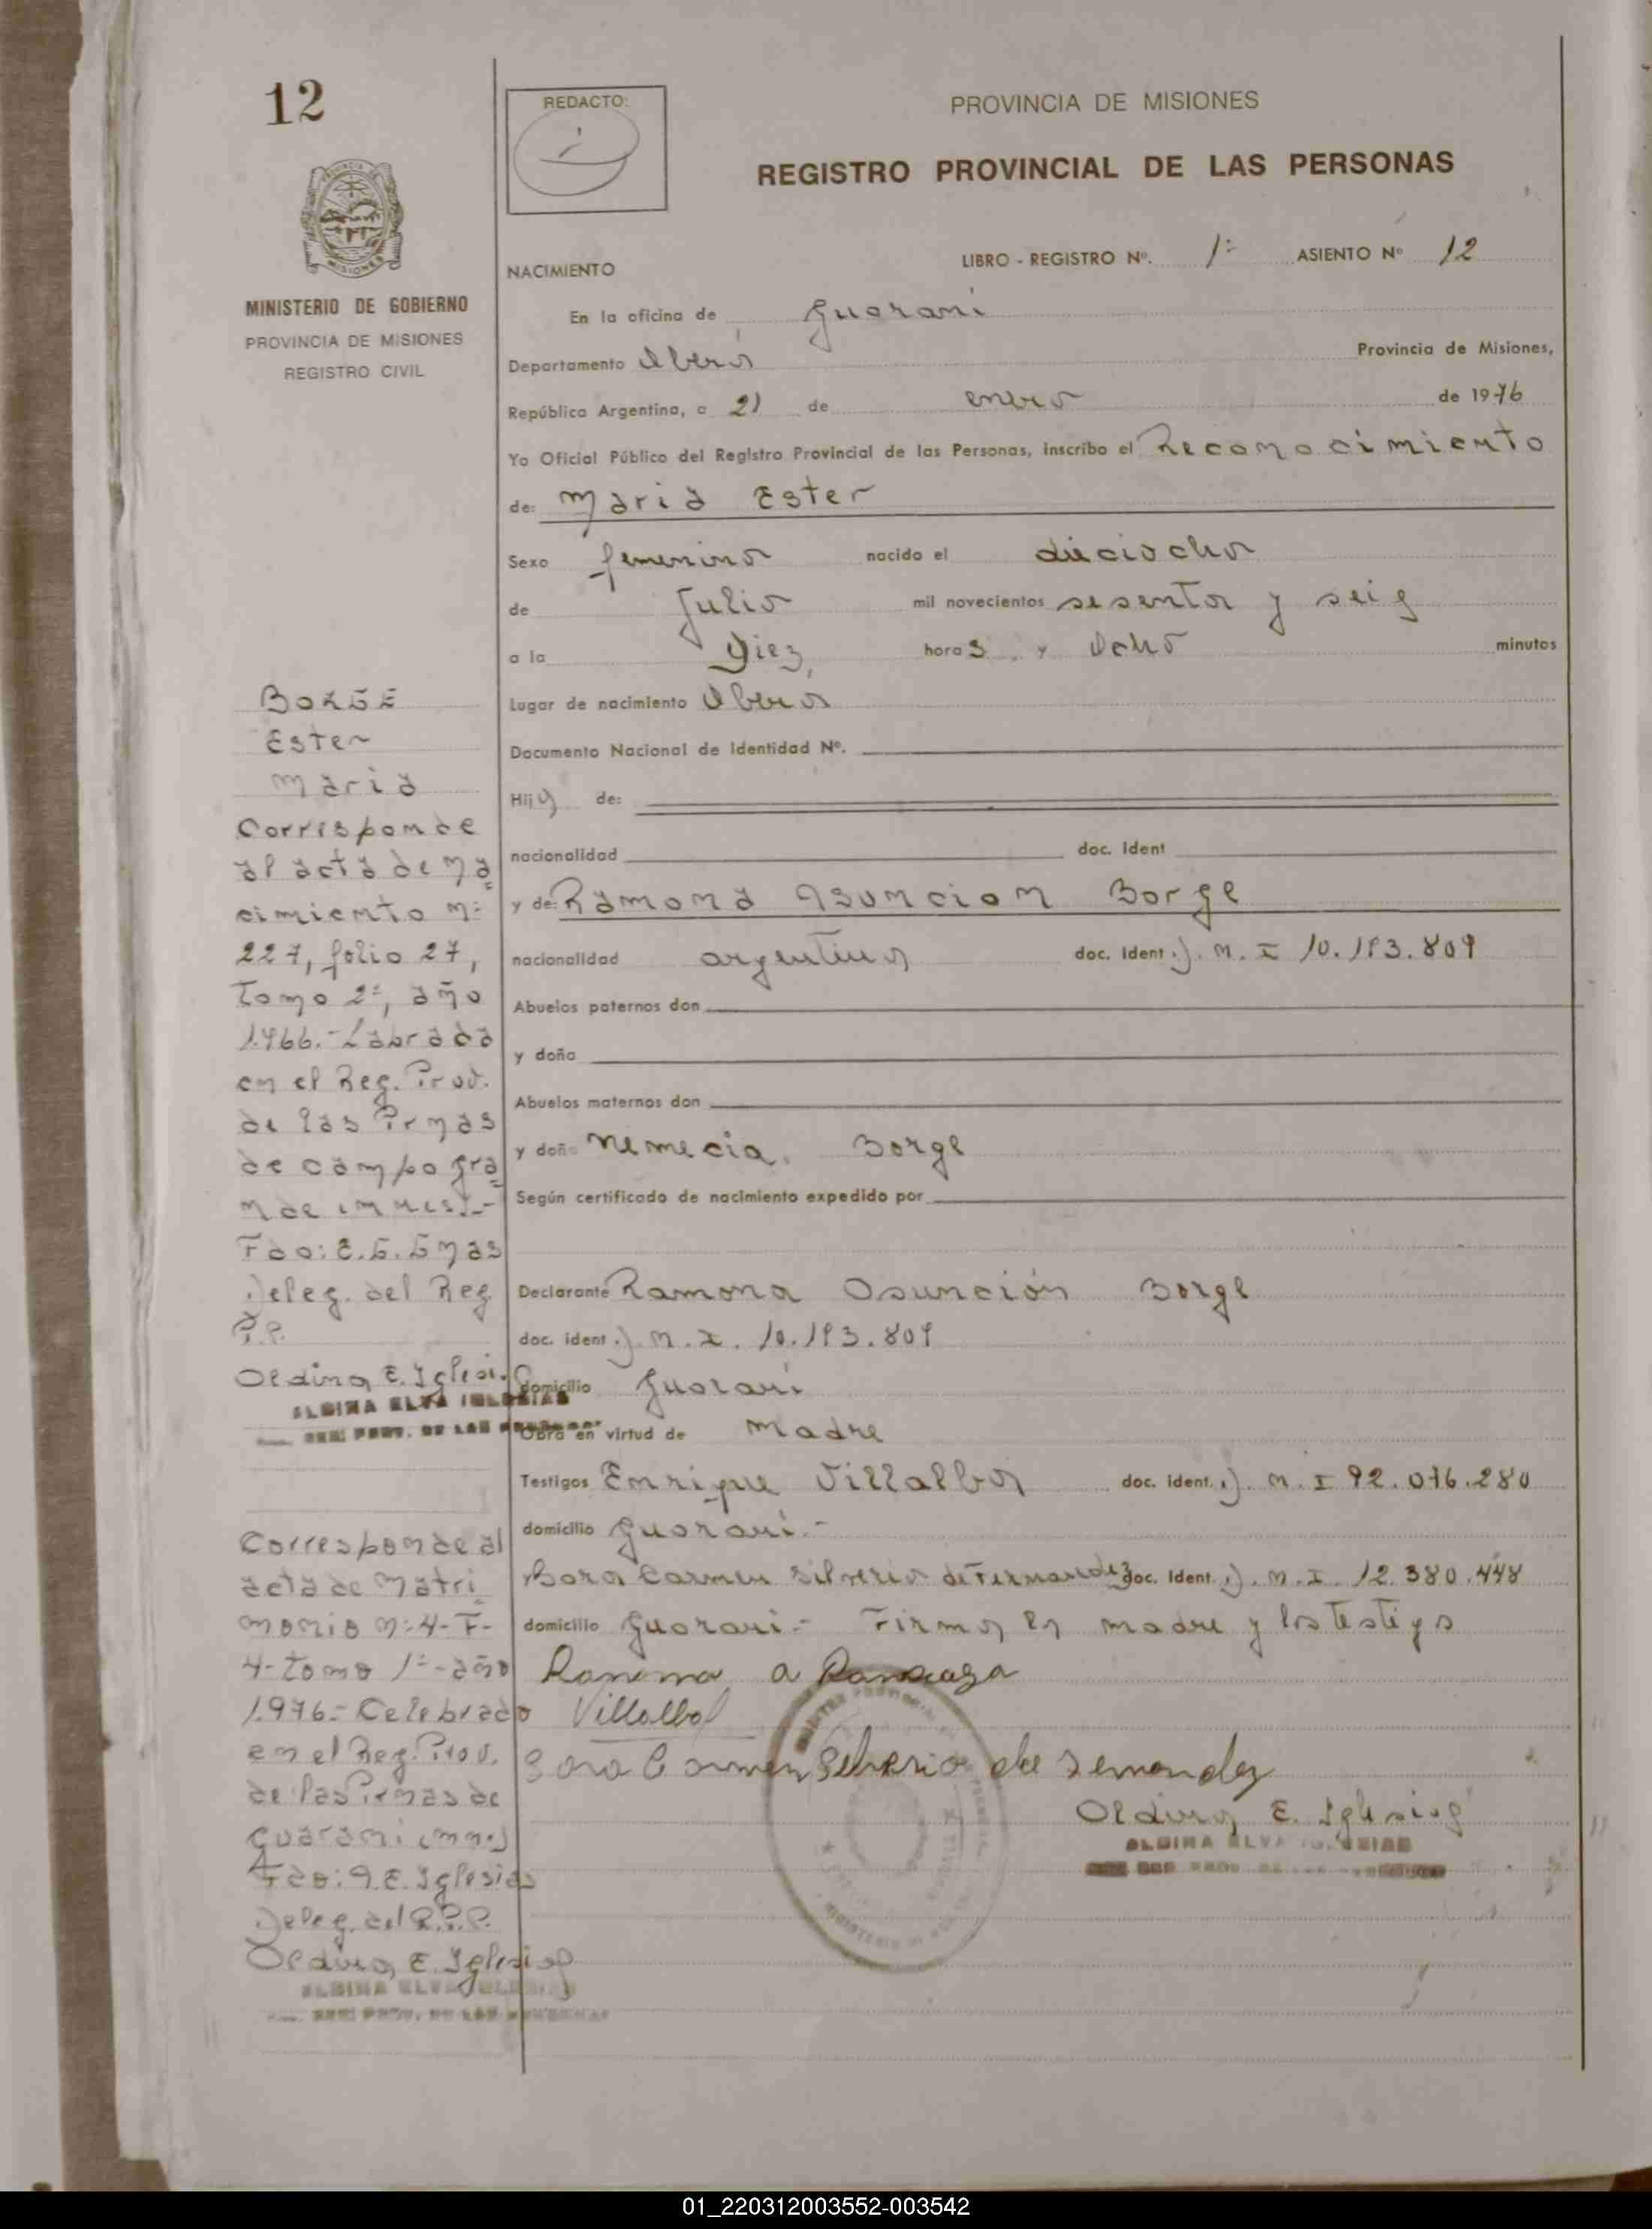 12
REDACTO:
PROVINCIA DE MISIONES
REGISTRO PROVINCIAL DE LAS PERSONAS
LIBRO - REGISTRO Nº. 1º ASIENTO Nº 12
NACIMIENTO
MINISTERIO DE GOBIERNO
PROVINCIA DE MISIONES
REGISTRO CIVIL
En la oficina de Guarani
Departamento Obera Provincia de Misiones,
República Argentina, a 21 de enero de 1976
Yo Oficial Público del Registro Provincial de las Personas, inscribo el Reconocimiento
de: Maria Ester
Sexo femenino nacido el dieciocho
de Julio mil novecientos sesenta y seis
a la Diez, horas y Ocho minutos
Lugar de nacimiento Obera
Documento Nacional de Identidad Nº.
Hija de:
nacionalidad doc. Ident
y de: Ramona Asuncion Borge
nacionalidad argentina doc. Ident. M. I 10.193.809
Abuelos paternos don
y doña
Abuelos maternos don
y doña Nemecia Borge
Según certificado de nacimiento expedido por
Declarante Ramona Asunción Borge
doc. ident. M. I. 10.193.809
domicilio Guarani
Obra en virtud de Madre
Testigos Enrique Villalba doc. ident. M. I 92.076.280
domicilio Guarani.-
Carmen Silverio de Fernandez doc. Ident. M. I. 12.380.448
domicilio Guarani.- Firma la madre y los testigos
Ramona a
Villalba
Carmen Silverio de
Aldina E. Iglesias
BORGE
Ester
Maria
Corresponde
al acta de na
cimiento nº
227, folio 27,
Tomo 2º, año
1.966.- Labrada
en el Reg. Prov.
de las Prnas
de campo gra
nde
Fdo: E. G.
Deleg. del Reg.
P.P.
Aldina E. Iglesias
ALDINA ELVA IGLESIAS
REG PROV. DE LAS PERSONAS
Corresponde al
acta de Matri
monio nº 4- F-
4- tomo 1º- año
1.976.- Celebrado
en el Reg. Prov.
de las Prnas de
Guarani (mnes)
Fdo: A. E. Iglesias
Deleg. del R.P.P.
Aldina E. Iglesias
ALDINA ELVA IGLESIAS
REG PROV. DE LAS PERSONAS
ALDINA ELVA IGLESIAS
01_220312003552-003542